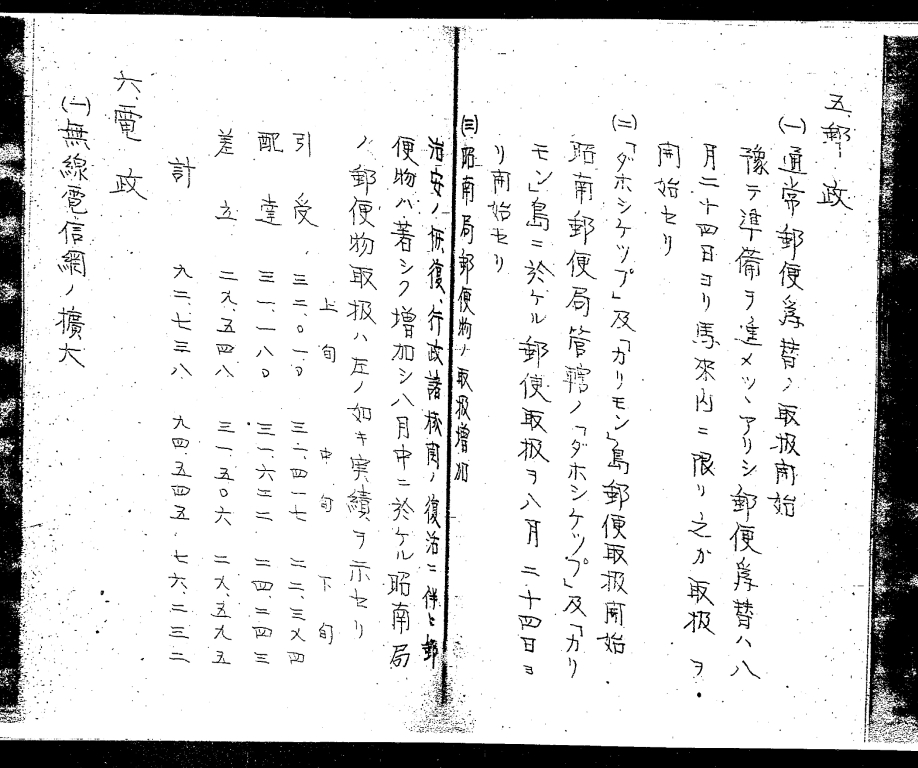 五、郵政
(一)通常郵便為替ノ取扱開始
豫テ準備ヲ進メツヽアリシ郵便為替ハ八
月二十四日ヨリ馬来内ニ限リ之カ取扱ヲ
開始セリ
(二)「ダホシケップ」及「カリモン」島郵便取扱開始
昭南郵便局管轄ノ「ダホシケップ」及「カリ
モン」島ニ於ケル郵便取扱ヲ八月二十四日ヨ
リ開始セリ
(三)昭南局郵便物ノ取扱増加
治安ノ恢復、行政諸機関ノ復活ニ伴ヒ郵
便物ハ著シク増加シ八月中ニ於ケル昭南局
ノ郵便物取扱ハ左ノ如キ実績ヲ示セリ
上旬 中旬 下旬
引受 三二.〇一〇 三一.四一七 二二.三九四
配達 三一.一八〇 三一.六二二 二四.二四三
差立 二九.五四八 三一.五〇六 二九.五九五
計 九二.七三八 九四.五四五 七六.二三二
六、電政
(一)無線電信網ノ擴大